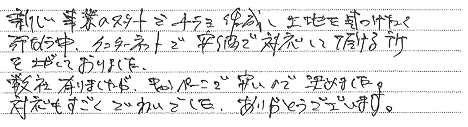 新しい事業のスタートでチラシ作成し土地を見つけたく
中、インターネットで安価で対応して頂ける所
を探しておりました。
数社有りましたが、安いので決めました。
対応もすごくていねいでした。ありがとうございます。